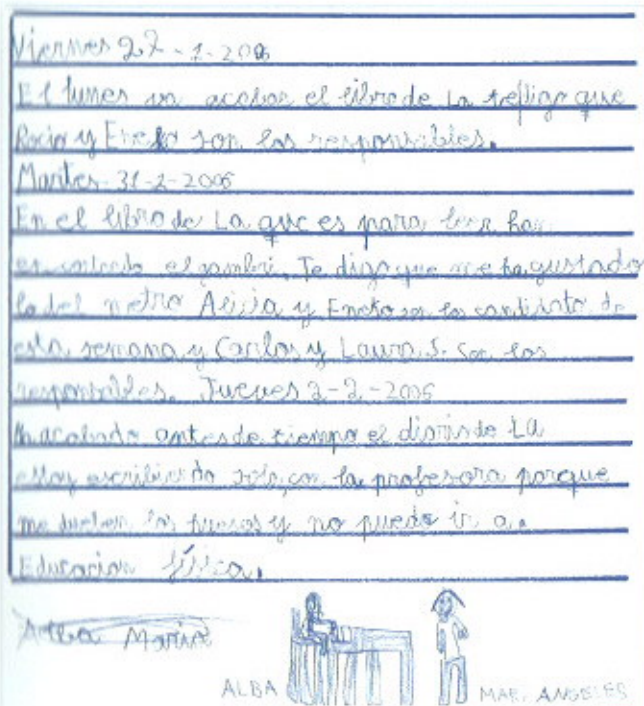 Viernes 27-1-2006
El lunes va acabar el libro de La te digo que
Rocio y Eneko son los responsables.
Martes 31-2-2006
En el libro de La que es para leer han
el Te digo que me ha gustado
lo del metro Alicia y Eneko son los candidato de
esta semana y Carlos y Laura S. son los
responsables. Jueves 2-2-2006
acabado antes de tiempo el diario de La
estoy escribiendo solo, con la profesora porque
me duelen los huesos y no puedo ir a.
Educacion física.
Alba Maria
ALBA MAR. ANGELES